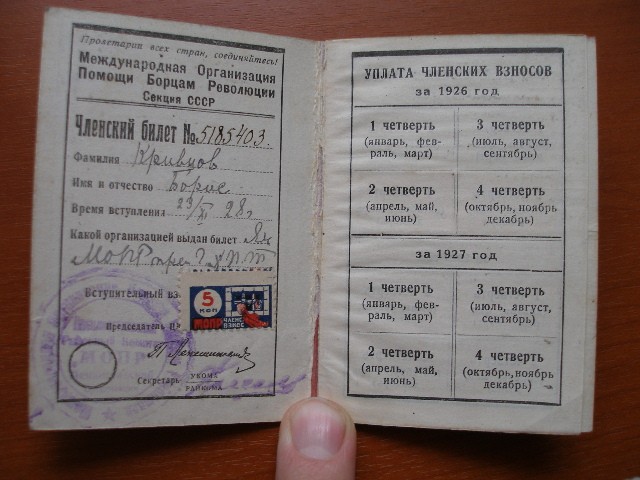 Пролетарии всех стран, соединяйтесь!
Международная Организация
Помощи Борцам Революции
Секция СССР
Членский билет № 5185403.
Фамилия Кривцов
Имя и отчество Борис
Время вступления 23/XI 28 г
Какой организацией выдан билет
МОПР
Вступительный вз
5
КОП
МОПР
ЧЛЕНСК
ВЗНОС
Председатель
Секретарь УКОМА
РАЙКОМА
МОПР
УПЛАТА ЧЛЕНСКИХ ВЗНОСОВ
за 1926 год
1 четверть
(январь, фев-
раль, март)
3 четверть
(июль, август,
сентябрь)
2 четверть
(апрель, май,
июнь)
4 четверть
(октябрь, ноябрь
декабрь)
за 1927 год
1 четверть
(январь, фев-
раль, март)
3 четверть
(июль, август,
сентябрь)
2 четверть
(апрель, май,
июнь)
4 четверть
(октябрь, ноябрь
декабрь)